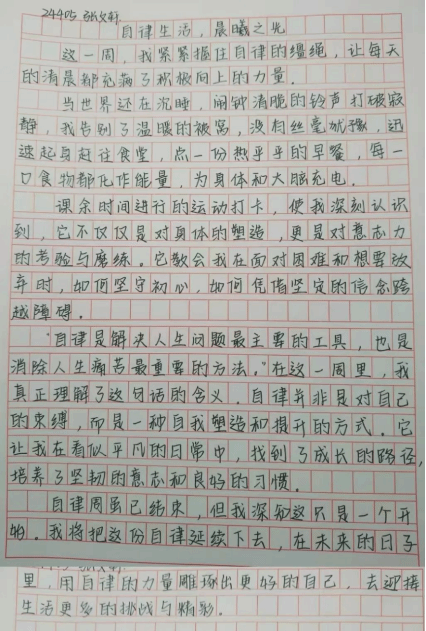 24405 张文轩
自律生活，晨曦之光
这一周，我紧紧握住自律的缰绳，让每天
的清晨都充满了积极向上的力量。
当世界还在沉睡，闹钟清脆的铃声打破寂
静，我告别了温暖的被窝，没有丝毫犹豫，迅
速起身赶往食堂，点一份热乎乎的早餐，每一
口食物都化作能量，为身体和大脑充电。
课余时间进行的运动打卡，使我深刻认识
到，它不仅仅是对身体的塑造，更是对意志力
的考验与磨练。它教会我在面对困难和想要放
弃时，如何坚守初心，如何凭借坚定的信念跨
越障碍。
“自律是解决人生问题最主要的工具，也是
消除人生痛苦最重要的方法。”在这一周里，我
真正理解了这句话的含义。自律并非是对自己
的束缚，而是一种自我塑造和提升的方式。它
让我在看似平凡的日常中，找到了成长的路径，
培养了坚韧的意志和良好的习惯。
自律周虽已结束，但我深知这只是一个开
始。我将把这份自律延续下去，在未来的日子
里，用自律的力量雕琢出更好的自己，去迎接
生活更多的挑战与精彩。